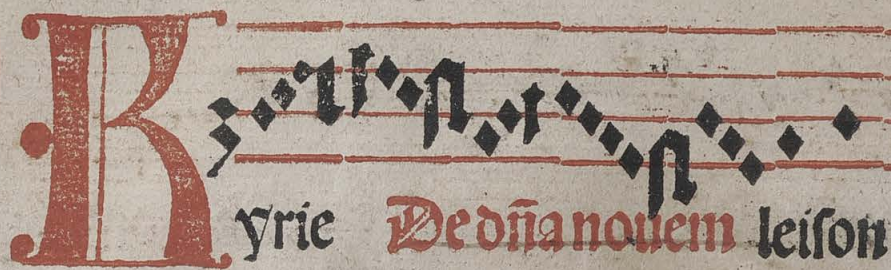 Kyrie De dn̄a nouem leiſon